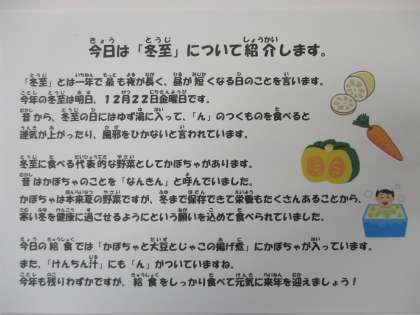 今日は「冬至」について紹介します。
「冬至」とは一年で最も夜が長く、昼が短くなる日のことを言います。
今年の冬至は明日、12月22日金曜日です。
昔から、冬至の日にはゆず湯に入って、「ん」のつくものを食べると
運気が上がったり、風邪をひかないと言われています。
冬至に食べる代表的な野菜としてかぼちゃがあります。
昔はかぼちゃのことを「なんきん」と呼んでいました。
かぼちゃは本来夏の野菜ですが、冬まで保存できて栄養もたくさんあることから、
寒い冬を健康に過ごせるようにという願いを込めて食べられていました。
今日の給食では「かぼちゃと大豆とじゃこの揚げ煮」にかぼちゃが入っています。
また、「けんちん汁」にも「ん」がついていますね。
今年も残りわずかですが、給食をしっかり食べて元気に来年を迎えましょう！